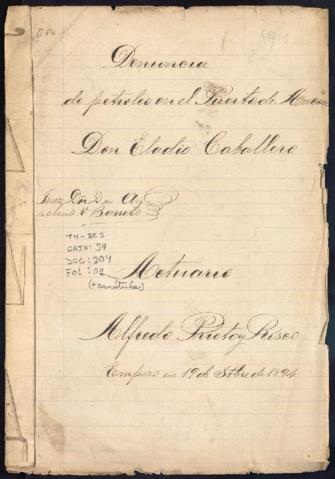 Denuncia
de petroleo en el Puerto de
Don Eladio Caballero
Juez Dor Don An
selmo V Barreto
TH-DE2
CAJA: 54
DOC: 204
FOL: 01
(+ carátula)
Actuario
Alfredo Prieto y Risco
Empezo en 19 de Stbre de 1894